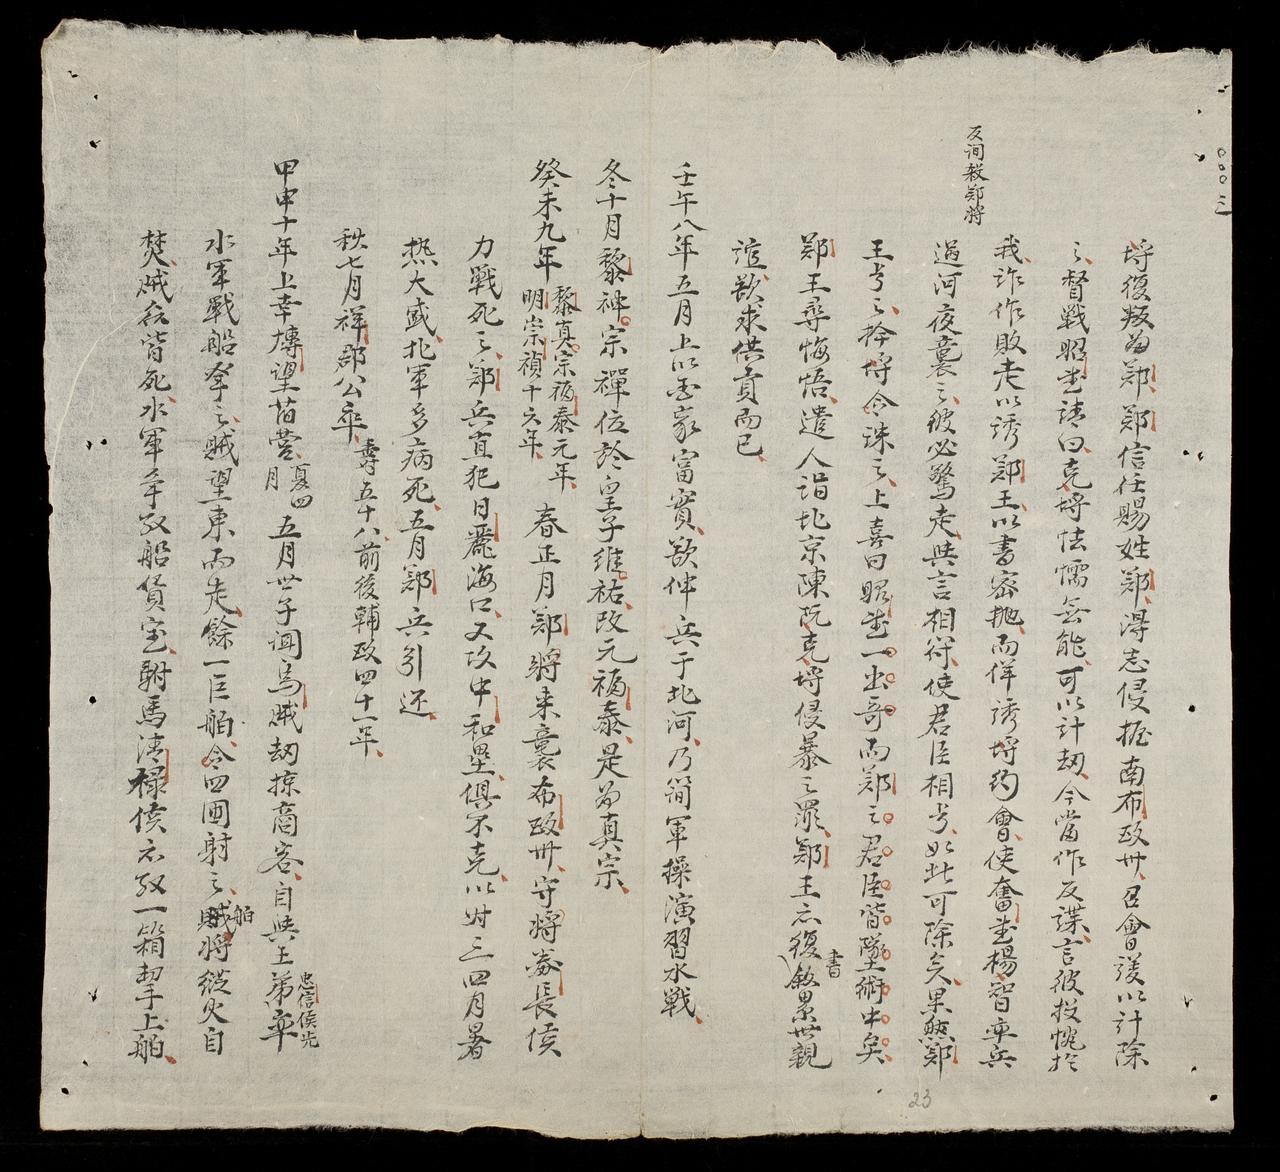 反间殺鄭將
埒復叛為鄭、鄭信任賜姓鄭、得志侵擾南布政卅、召會議以計除
之、督戰昭武請曰、克埒怯懦無能、可以計刼、今當作反諜、言彼投悃於
我、詐作敗走以誘鄭王、以書密拋、而佯誘埒約會、使奮武楊智率兵
過河夜襲之、彼必驚走、與言相符、使君臣相考、如此可除矣、果然鄭
王考之、拎埒令誅之、上喜曰昭武一出哥而鄭之君臣皆墜術中矣、
鄭王尋悔悟、遣人詣北京陳阮克埒侵暴之罪、鄭王亦復書敘累世親
誼、欲求供貢而已、
壬午八年五月上以國家富實、欲伸兵于北河、乃简軍操演習水戰、
冬十月黎神宗禪位於皇子維祐改元福泰、是為真宗、
癸未九年 黎真宗福泰元年、明崇禎十六年、 春正月鄭將来襲布政卅、守將泰長侯
力戰死之、鄭兵直犯日麗海口、又攻中和壘、俱不克、以時三四月暑
热大盛、北軍多病死、五月鄭兵引还、
秋七月祥郡公卒、壽五十八、前後輔政四十一年、
甲申十年上幸博望苗营、夏四月 五月世子闻烏賊刼掠商客、自與王弟率 忠信侯先
水軍戰船拿之、賊望東而走、餘一巨舶、令四圍射之、賊舶將縱火自
焚、賊夥皆死、水軍争取船貨宝、駙馬清禄侯亦取一箱挈上舶、
23